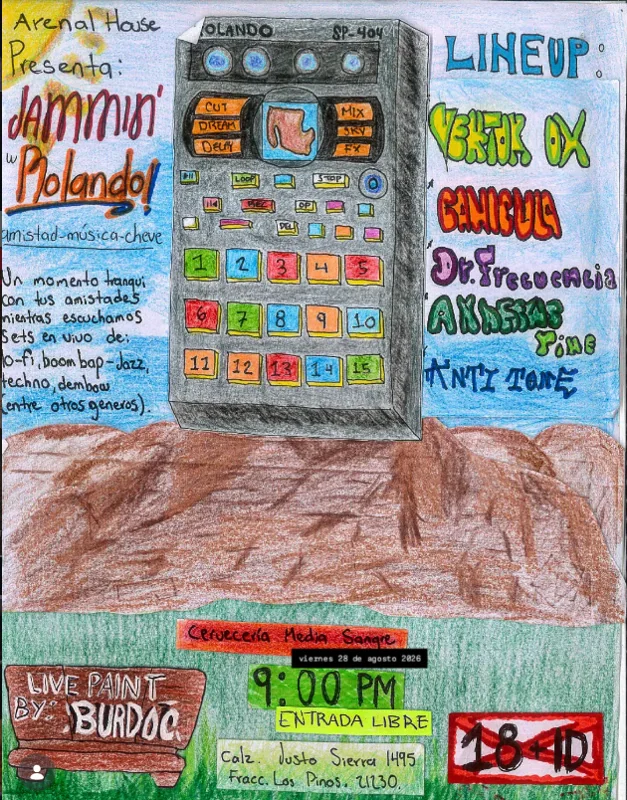 Arenal House
Presenta:
JAMMIN'
w
Rolando!
amistad-musica-cheve
Un momento tranqui
con tus amistades
mientras escuchamos
sets en vivo de:
lo-fi, boom bap - Jazz,
techno, dembow
(entre otros generos).
ROLANDO SP-404
CUT
DREAM
DELAY
MIX
SRV
FX
LOOP
STOP
REC
OP
DEL
1 2 3 4 5
6 7 8 9 10
11 12 13 14 15
LINEUP:
VEKTOR OX
CANICULA
Dr. Frecuencia
Pine
ANTI TONE
Cervecería Media Sangre
viernes 28 de agosto 2026
9:00 PM
ENTRADA LIBRE
Calz. Justo Sierra 1495
Fracc. Los Pinos. 21230.
LIVE PAINT
BY: BURDOC
18+ID